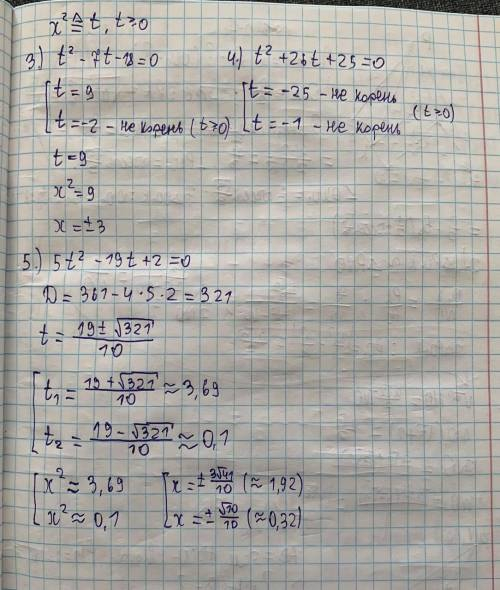 x² ≜ t, t ≥ 0
3) t² - 7t - 18 = 0
t = 9
t = -2 - не корень (t ≥ 0)
t = 9
x² = 9
x = ±3
4) t² + 26t + 25 = 0
t = -25 - не корень
t = -1 - не корень
(t ≥ 0)
5) 5t² - 19t + 2 = 0
D = 361 - 4·5·2 = 321
t = (19 ± √321)/10
t₁ = (19 + √321)/10 ≈ 3,69
t₂ = (19 - √321)/10 ≈ 0,1
x² ≈ 3,69
x² ≈ 0,1
x = ± 3√41/10 (≈ 1,92)
x = ± √10/10 (≈ 0,32)